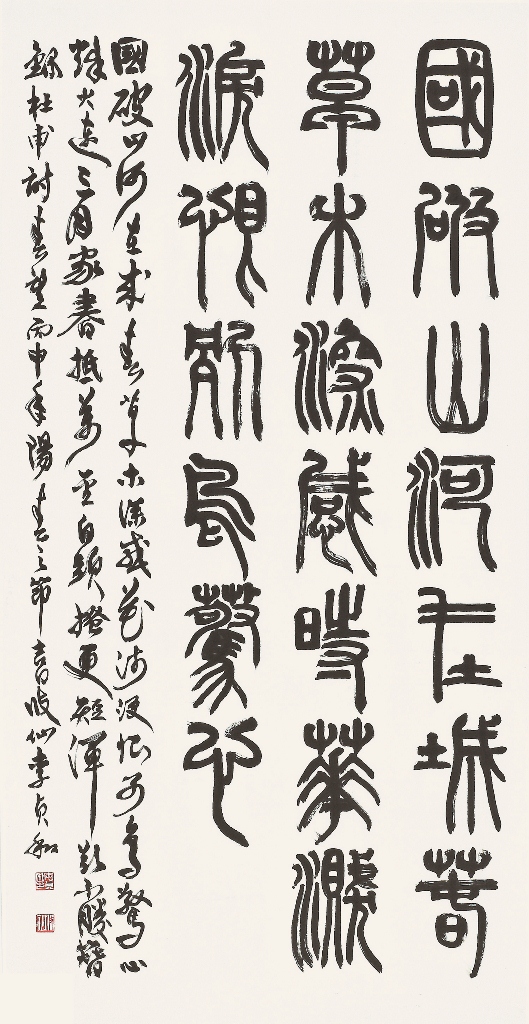 國破山河在城春
草木深感時華濺
淚恨別鳥驚心
國破山河在城春草木深感花淚恨別鳥驚心
烽火連三月家書抵萬金白頭搔更短渾欲不勝簪
錄杜甫詩春望丙申年陽春之節 李貞和